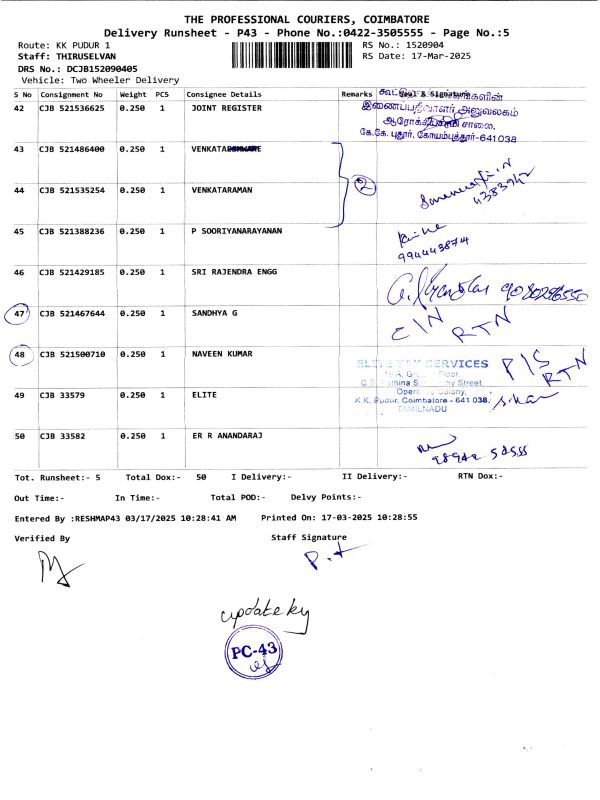 THE PROFESSIONAL COURIERS, COIMBATORE
Delivery Runsheet - P43 - Phone No.:0422-3505555 - Page No.:5
Route: KK PUDUR 1 RS No.: 1520904
Staff: THIRUSELVAN RS Date: 17-Mar-2025
DRS No.: DCJB152090405
Vehicle: Two Wheeler Delivery
S No Consignment No Weight PCS Consignee Details Remarks Seal & Signature
42 CJB 521536625 0.250 1 JOINT REGISTER
இணைப்பதிவாளர் அலுவலகம்
சாலை,
கே.கே. புதூர், கோயம்புத்தூர்-641 038
43 CJB 521486400 0.250 1
2
44 CJB 521535254 0.250 1 VENKATARAMAN
45 CJB 521388236 0.250 1 P SOORIYANARAYANAN
9944438714
46 CJB 521429185 0.250 1 SRI RAJENDRA ENGG
9080286550
47 CJB 521467644 0.250 1 SANDHYA G
C/N RTN
48 CJB 521500710 0.250 1 NAVEEN KUMAR
P/S RTN
ELITE TAX SERVICES
Floor,
Street,
Colony,
K.K. Pudur, Coimbatore - 641 038.
TAMILNADU
49 CJB 33579 0.250 1 ELITE
50 CJB 33582 0.250 1 ER R ANANDARAJ
Tot. Runsheet:- 5 Total Dox:- 50 I Delivery:- II Delivery:- RTN Dox:-
Out Time:- In Time:- Total POD:- Delvy Points:-
Entered By :RESHMAP43 03/17/2025 10:28:41 AM Printed On: 17-03-2025 10:28:55
Verified By Staff Signature
update by
PC-43